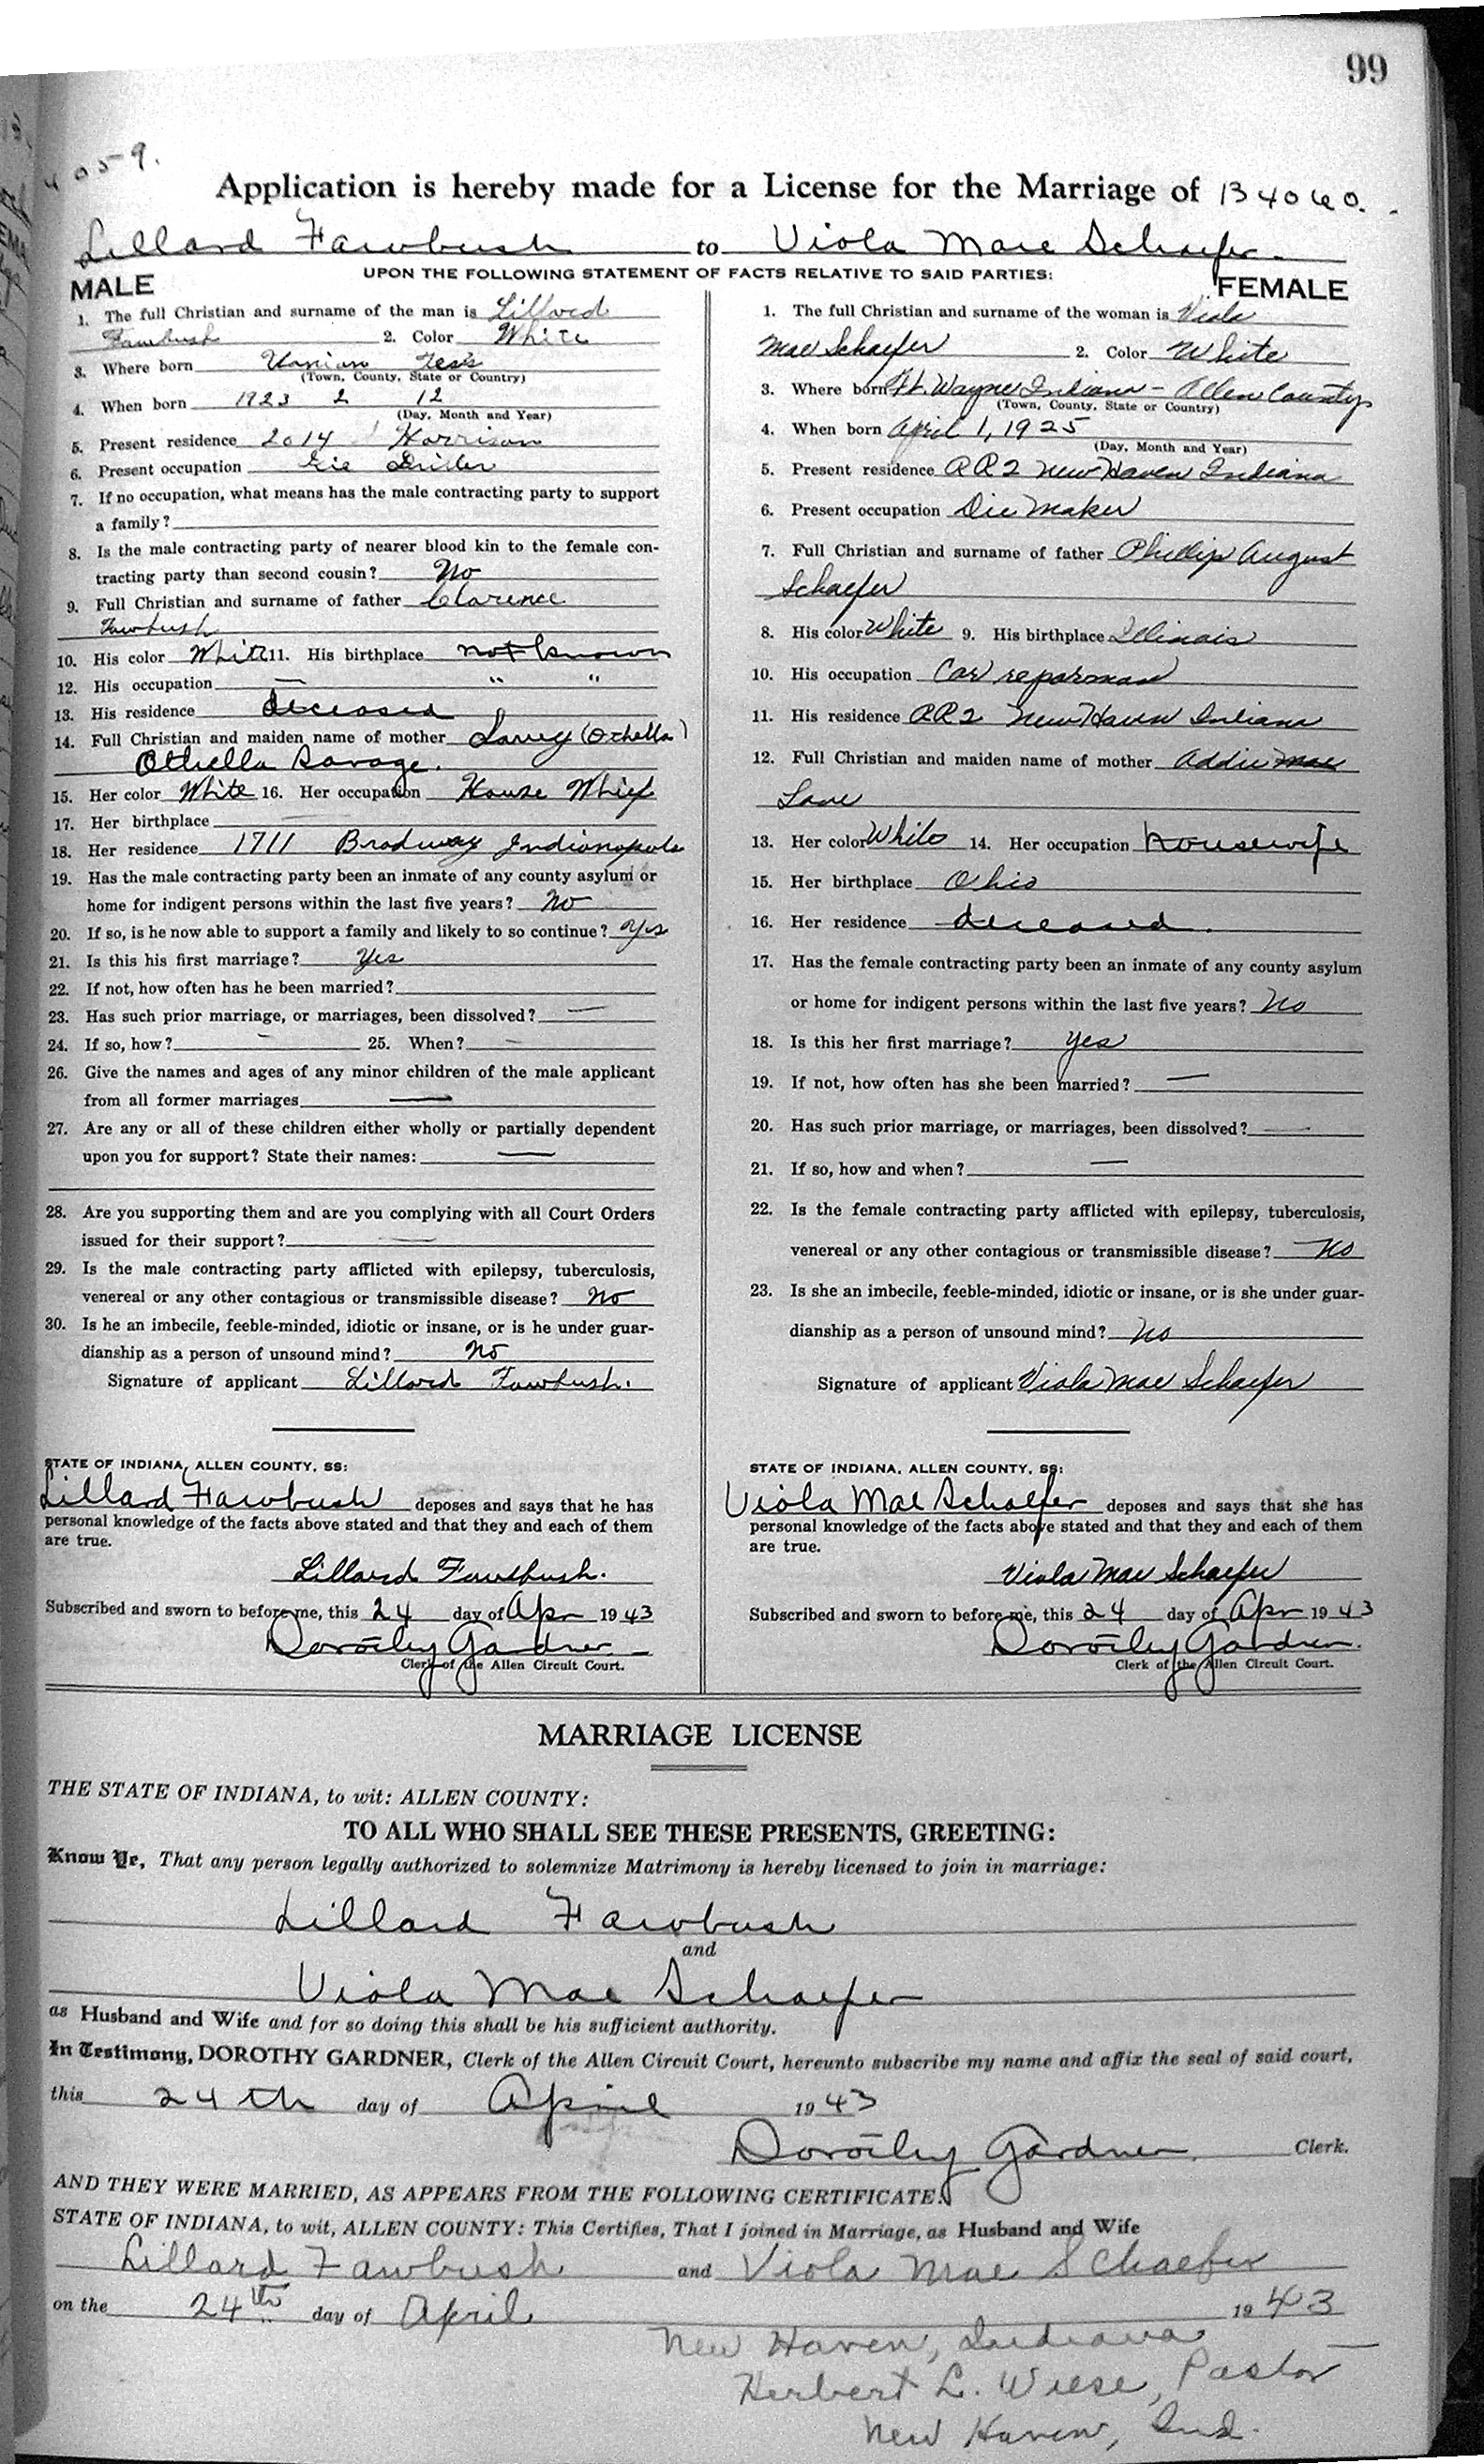 99
4059.
Application is hereby made for a License for the Marriage of B4060.
Lillard Fawbush to Viola Mae Schaefer.
UPON THE FOLLOWING STATEMENT OF FACTS RELATIVE TO SAID PARTIES:
MALE
1. The full Christian and surname of the man is Lillard
Fawbush 2. Color White
3. Where born Union
(Town, County, State or Country)
4. When born 1923 2 12
(Day, Month and Year)
5. Present residence 2014 Harrison
6. Present occupation
7. If no occupation, what means has the male contracting party to support
a family?
8. Is the male contracting party of nearer blood kin to the female con-
tracting party than second cousin? No
9. Full Christian and surname of father Clarence
Fawbush
10. His color White 11. His birthplace not known
12. His occupation — " "
13. His residence deceased
14. Full Christian and maiden name of mother (Othella)
Othella Savage.
15. Her color White 16. Her occupation House Whief
17. Her birthplace
18. Her residence 1711 Brodway Indianopols
19. Has the male contracting party been an inmate of any county asylum or
home for indigent persons within the last five years? No
20. If so, is he now able to support a family and likely to so continue? Yes
21. Is this his first marriage? Yes
22. If not, how often has he been married?
23. Has such prior marriage, or marriages, been dissolved? —
24. If so, how? - 25. When? -
26. Give the names and ages of any minor children of the male applicant
from all former marriages —
27. Are any or all of these children either wholly or partially dependent
upon you for support? State their names: —
28. Are you supporting them and are you complying with all Court Orders
issued for their support? —
29. Is the male contracting party afflicted with epilepsy, tuberculosis,
venereal or any other contagious or transmissible disease? No
30. Is he an imbecile, feeble-minded, idiotic or insane, or is he under guar-
dianship as a person of unsound mind? No
Signature of applicant Lillard Fawbush.
STATE OF INDIANA, ALLEN COUNTY, SS:
Lillard Fawbush deposes and says that he has
personal knowledge of the facts above stated and that they and each of them
are true.
Lillard Fawbush.
Subscribed and sworn to before me, this 24 day of Apr 1943
Dorothy Gardner
Clerk of the Allen Circuit Court.
FEMALE
1. The full Christian and surname of the woman is Viola
Mae Schaefer 2. Color White
3. Where born Ft. Wayne Indiana - Allen County
(Town, County, State or Country)
4. When born April 1, 1925
(Day, Month and Year)
5. Present residence RR2 New Haven Indiana
6. Present occupation Die Maker
7. Full Christian and surname of father Phillip August
Schaefer
8. His color White 9. His birthplace Illinois
10. His occupation Car reparman
11. His residence RR2 New Haven Indiana
12. Full Christian and maiden name of mother Addie Mae
Lane
13. Her color White 14. Her occupation housewife
15. Her birthplace Ohio
16. Her residence deceased.
17. Has the female contracting party been an inmate of any county asylum
or home for indigent persons within the last five years? No
18. Is this her first marriage? Yes
19. If not, how often has she been married? —
20. Has such prior marriage, or marriages, been dissolved? —
21. If so, how and when? —
22. Is the female contracting party afflicted with epilepsy, tuberculosis,
venereal or any other contagious or transmissible disease? No
23. Is she an imbecile, feeble-minded, idiotic or insane, or is she under guar-
dianship as a person of unsound mind? No
Signature of applicant Viola Mae Schaefer
STATE OF INDIANA, ALLEN COUNTY, SS:
Viola Mae Schaefer deposes and says that she has
personal knowledge of the facts above stated and that they and each of them
are true.
Viola Mae Schaefer
Subscribed and sworn to before me, this 24 day of Apr 1943
Dorothy Gardner.
Clerk of the Allen Circuit Court.
MARRIAGE LICENSE
THE STATE OF INDIANA, to wit: ALLEN COUNTY:
TO ALL WHO SHALL SEE THESE PRESENTS, GREETING:
Know Ye, That any person legally authorized to solemnize Matrimony is hereby licensed to join in marriage:
Lillard Fawbush
and
Viola Mae Schaefer
as Husband and Wife and for so doing this shall be his sufficient authority.
In Testimony, DOROTHY GARDNER, Clerk of the Allen Circuit Court, hereunto subscribe my name and affix the seal of said court,
this 24th day of April 1943
Dorothy Gardner. Clerk.
AND THEY WERE MARRIED, AS APPEARS FROM THE FOLLOWING CERTIFICATE.
STATE OF INDIANA, to wit, ALLEN COUNTY: This Certifies, That I joined in Marriage, as Husband and Wife
Lillard Fawbush and Viola Mae Schaefer
on the 24th day of April 1943
New Haven, Indiana
Herbert L. Wiese, Pastor
New Haven, Ind.